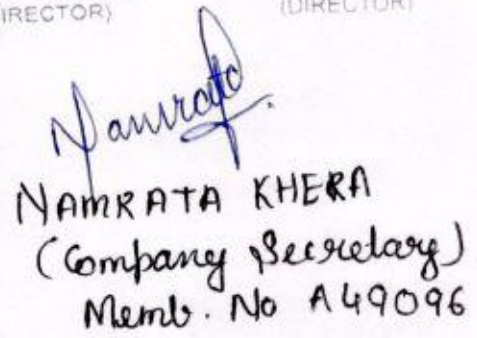 IRECTOR) (DIRECTOR)
Namrata
NAMRATA KHERA
(Company Secretary)
Memb. No A49096